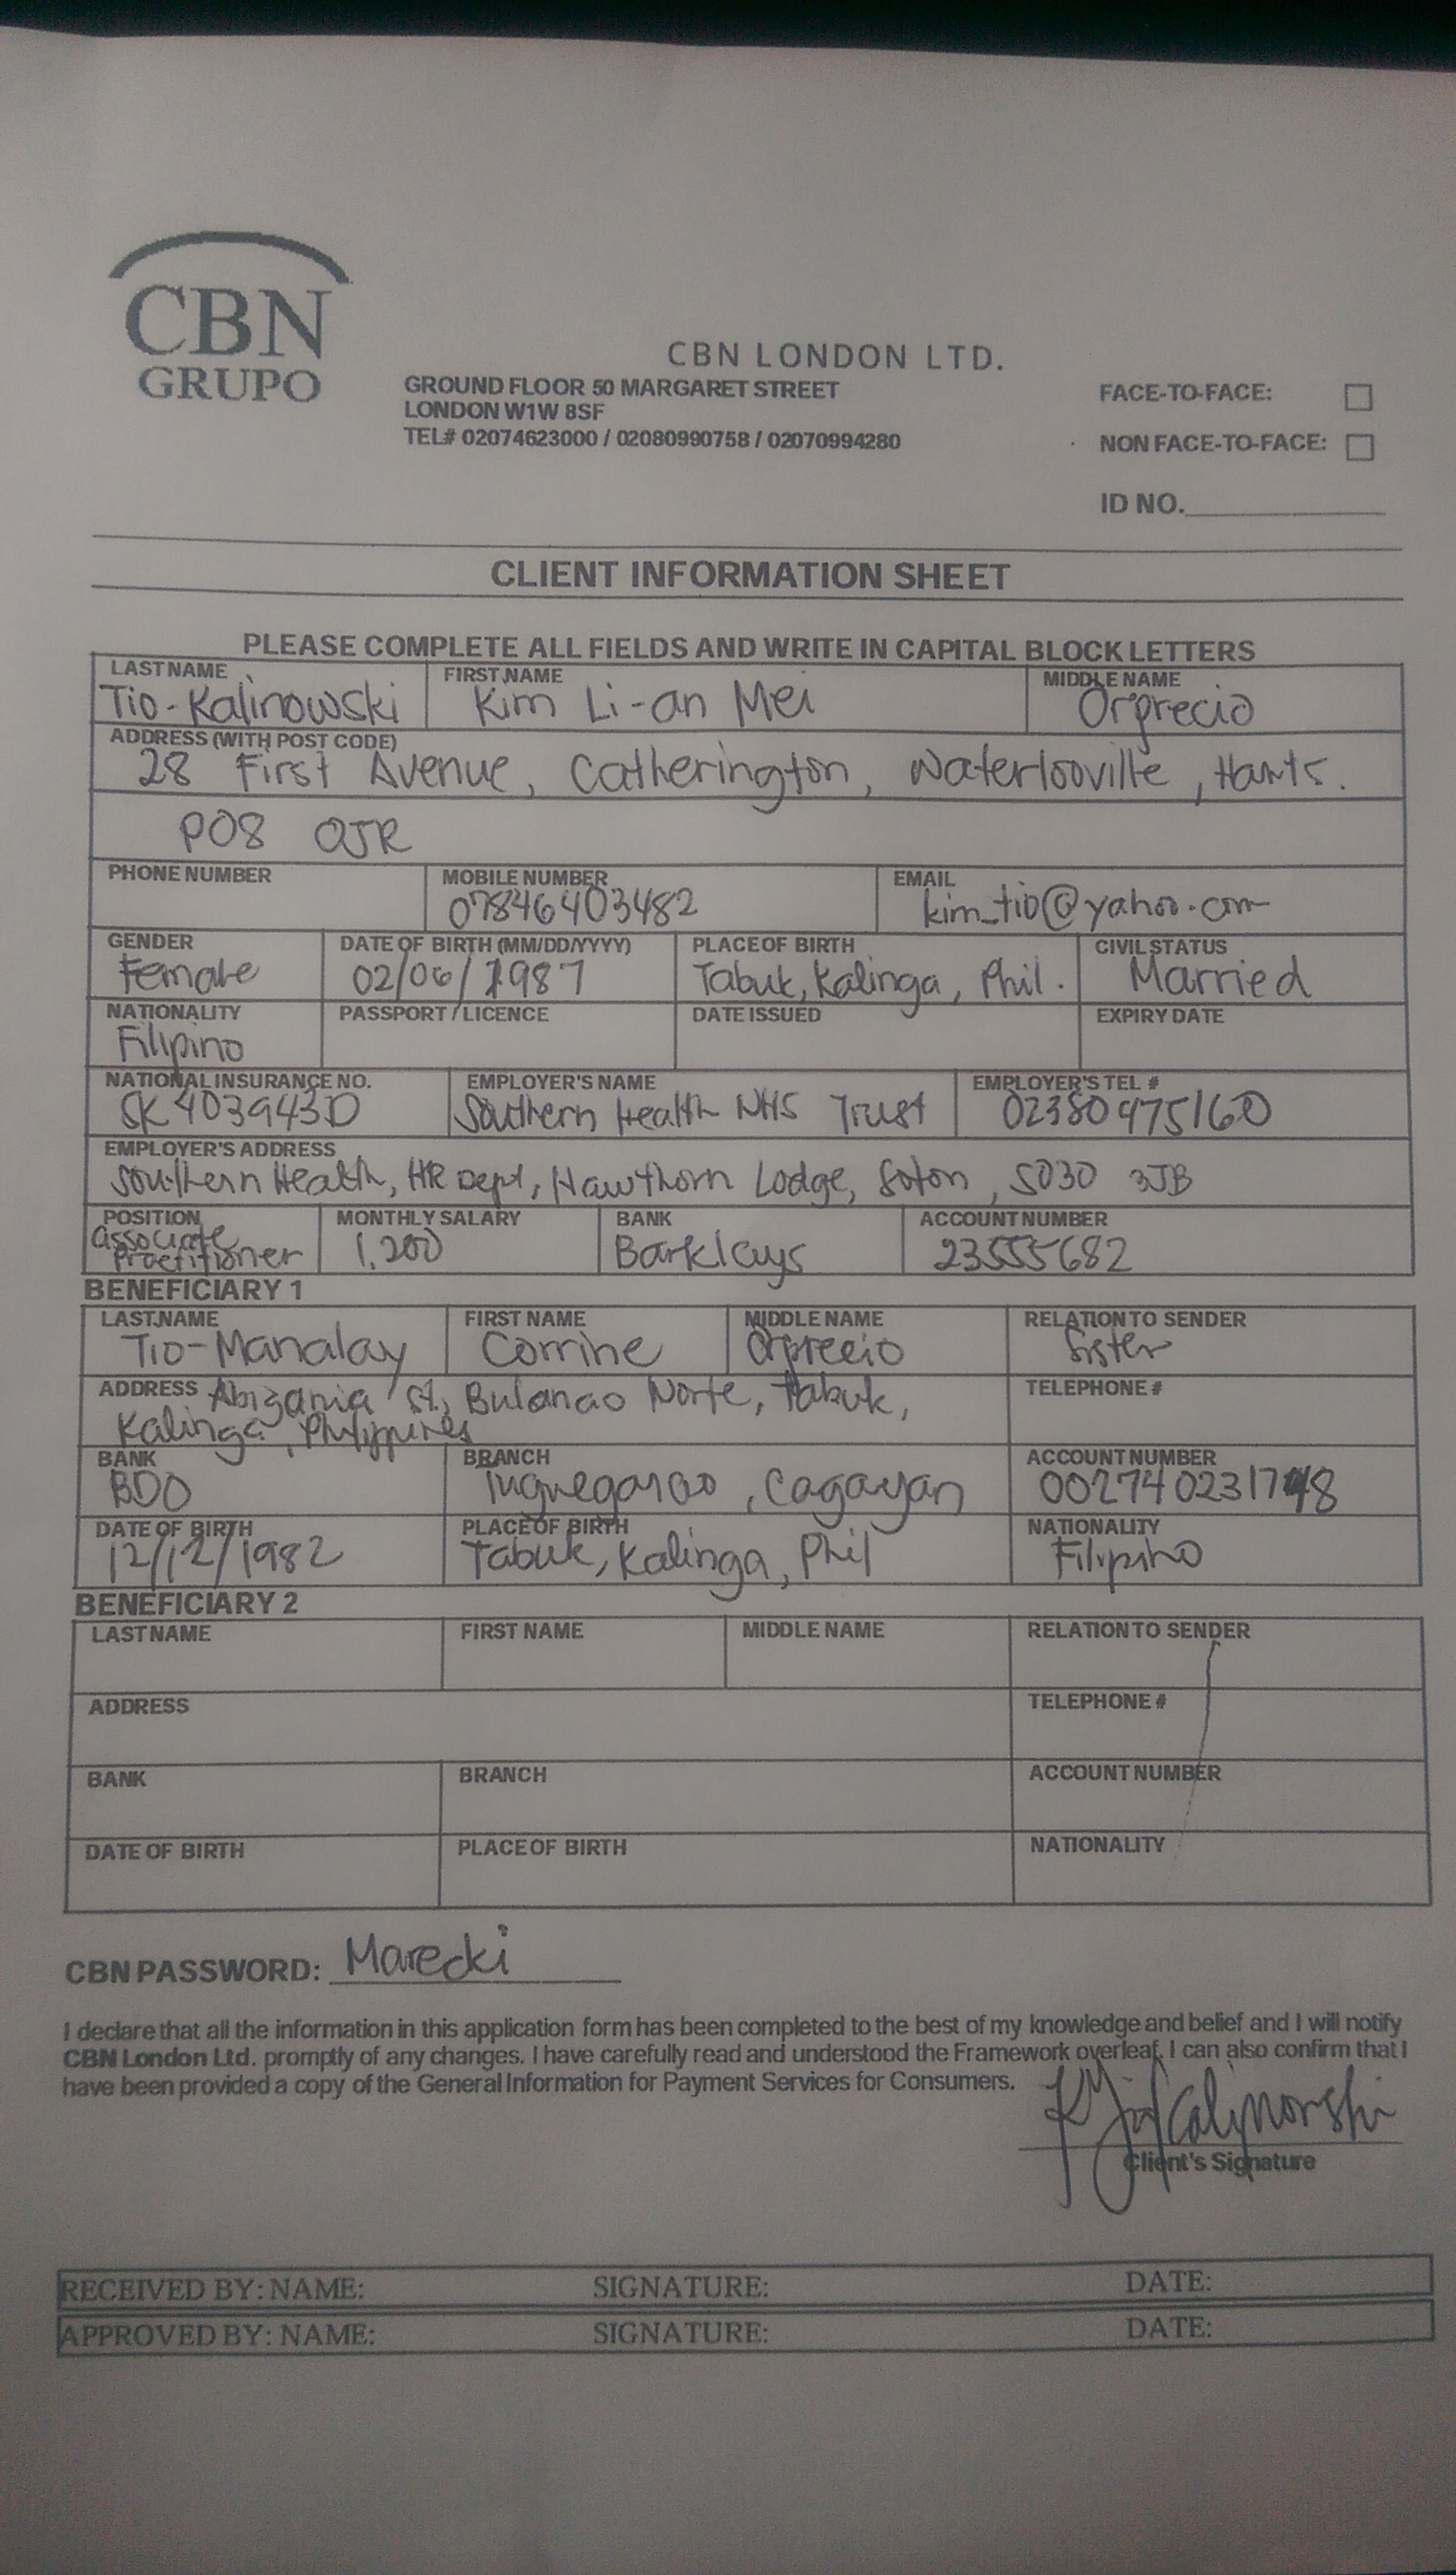 CBN
GRUPO
CBN LONDON LTD.
GROUND FLOOR 50 MARGARET STREET
LONDON W1W 8SF
TEL# 02074623000 / 02080990758 / 02070994280
FACE-TO-FACE:
NON FACE-TO-FACE:
ID NO.
CLIENT INFORMATION SHEET
PLEASE COMPLETE ALL FIELDS AND WRITE IN CAPITAL BLOCK LETTERS
LAST NAME FIRST NAME MIDDLE NAME
Tio-Kalinowski Kim Li-an Mei Orprecio
ADDRESS (WITH POST CODE)
28 First Avenue, Catherington, Waterlooville, Hants.
PO8 0JR
PHONE NUMBER MOBILE NUMBER EMAIL
07846403482 kim_tio@yahoo.com
GENDER DATE OF BIRTH (MM/DD/YYYY) PLACE OF BIRTH CIVIL STATUS
Female 02/06/1987 Tabuk, Kalinga, Phil. Married
NATIONALITY PASSPORT / LICENCE DATE ISSUED EXPIRY DATE
Filipino
NATIONAL INSURANCE NO. EMPLOYER'S NAME EMPLOYER'S TEL #
SK403943D Southern Health NHS Trust 02380475160
EMPLOYER'S ADDRESS
Southern Health, HR Dept, Hawthorn Lodge, Soton, SO30 3JB
POSITION MONTHLY SALARY BANK ACCOUNT NUMBER
Associate
Practitioner 1,200 Barklays 23555682
BENEFICIARY 1
LAST NAME FIRST NAME MIDDLE NAME RELATION TO SENDER
Tio-Manalay Corrine Orprecio Sister
ADDRESS Abigania St., Bulanao Norte, Tabuk, TELEPHONE #
Kalinga, Philippines
BANK BRANCH ACCOUNT NUMBER
BDO Tuguegarao, Cagayan
DATE OF BIRTH PLACE OF BIRTH NATIONALITY
12/12/1982 Tabuk, Kalinga, Phil Filipino
BENEFICIARY 2
LAST NAME FIRST NAME MIDDLE NAME RELATION TO SENDER
ADDRESS TELEPHONE #
BANK BRANCH ACCOUNT NUMBER
DATE OF BIRTH PLACE OF BIRTH NATIONALITY
CBN PASSWORD: Marecki
I declare that all the information in this application form has been completed to the best of my knowledge and belief and I will notify
CBN London Ltd. promptly of any changes. I have carefully read and understood the Framework overleaf. I can also confirm that I
have been provided a copy of the General Information for Payment Services for Consumers.
Client's Signature
RECEIVED BY: NAME: SIGNATURE: DATE:
APPROVED BY: NAME: SIGNATURE: DATE: